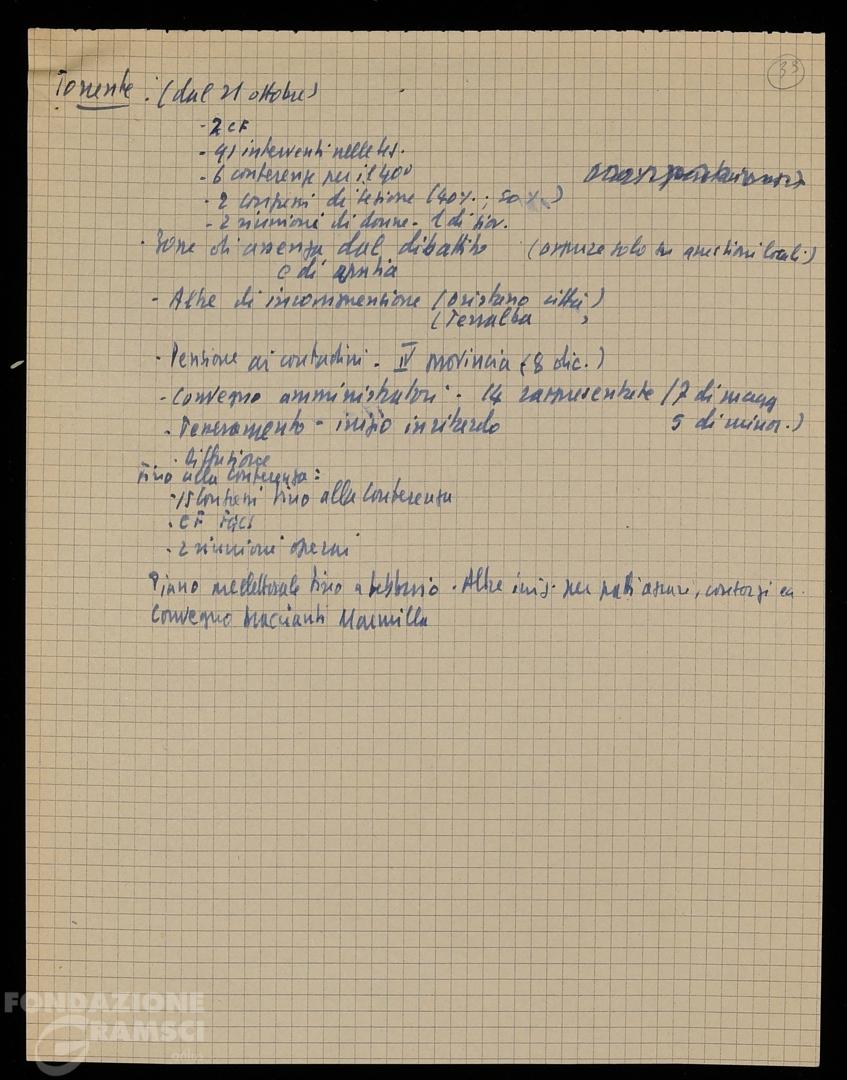 33
Torrente: (dal 21 ottobre)
- 2 CF
- 41 interventi nelle
- 6 conferenze per il 40º
- 2 congressi di sezione (40%; 50%)
- 2 riunioni di donne - 1 di
- Zone di assenza dal dibattito (oppure solo su questioni locali)
e di apatia
- Altre di incomprensione (Oristano città)
(Terralba )
- Pensione ai contadini - IV provincia (8 dic.)
- Convegno amministratori - 14 rappresentate (7 di magg
- Tesseramento - inizio in ritardo 5 di minor.)
- Diffusione
Fino alla conferenza:
- 15 Congressi fino alla Conferenza
- CF FGCI
- 2 riunioni operai
Piano preelettorale fino a febbraio. Altre iniz. per patti agrari,
Convegno braccianti Marmilla
FONDAZIONE
GRAMSCI
onlus